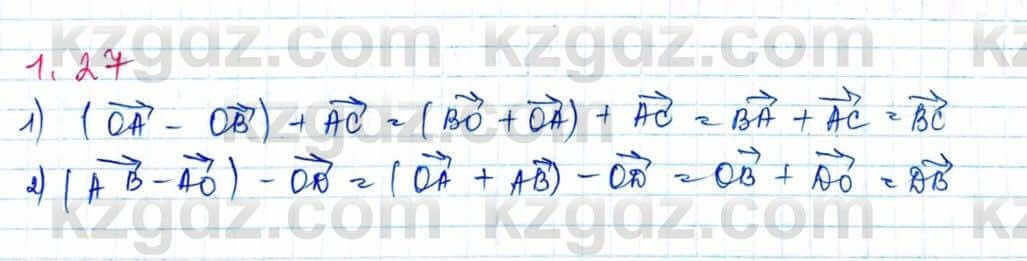 kzgdz.com kzgdz.com kz
1.27
1) (OA⃗ - OB⃗) + AC⃗ = (BO⃗ + OA⃗) + AC⃗ = BA⃗ + AC⃗ = BC⃗
kzgdz.com
2) (AB⃗ - AO⃗) - OD⃗ = (OA⃗ + AB⃗) - OD⃗ = OB⃗ + DO⃗ = DB⃗
kzgdz.com kzgdz.com kz